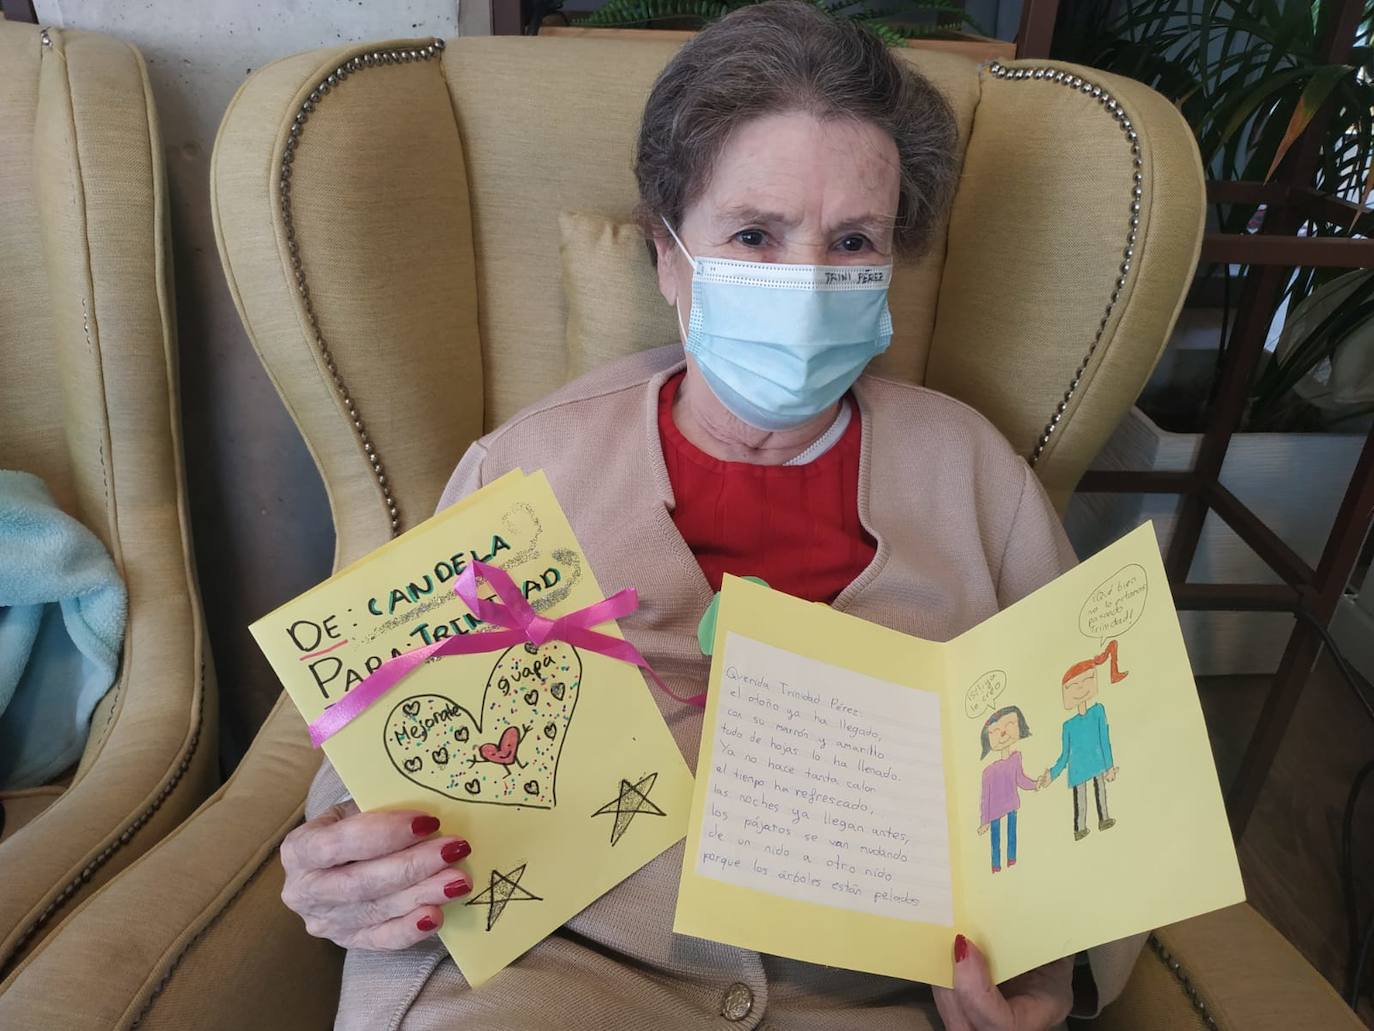 TRINI PÉREZ
DE: CANDELA
PARA: TRINIDAD
Mejorate
guapa
Querida Trinidad Pérez:
el otoño ya ha llegado,
con su marrón y amarillo
todo de hojas lo ha llenado.
Ya no hace tanta calor
el tiempo ha refrescado,
las noches ya llegan antes,
los pájaros se van mudando
de un nido a otro nido
porque los árboles están pelados
¡Qué bien
nos lo estamos
pasando
Trinidad!